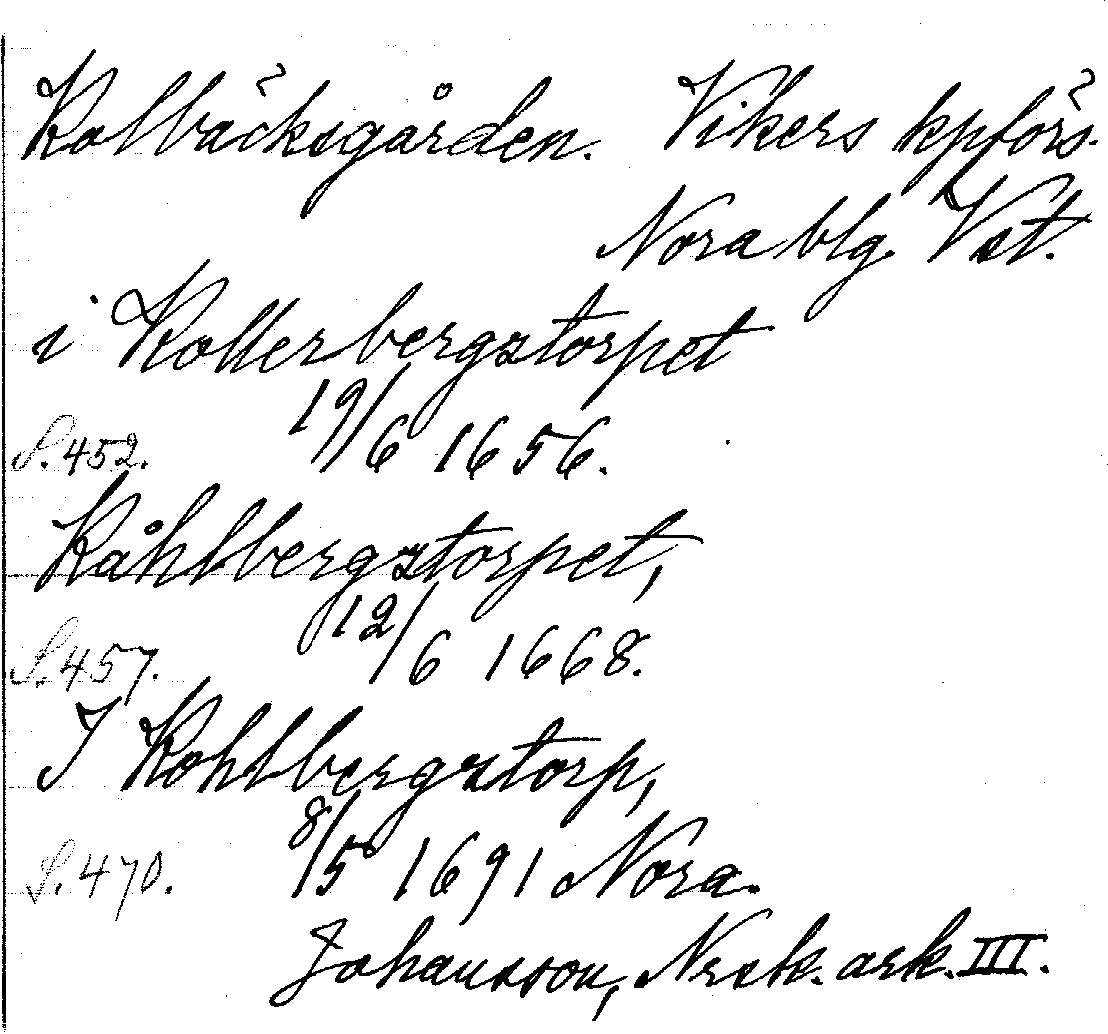 Kolbäcksgården. Vikers kpförs.
Nora blg. Vst.
i Kollerbergztorpet
S. 452. 19/6 1656.
Kåhlbergztorpet,
S. 457. 12/6 1668.
I Kohlbergztorp,
S. 470. 8/5 1691 Nora.
Johansson, Nrsk. ark. III.